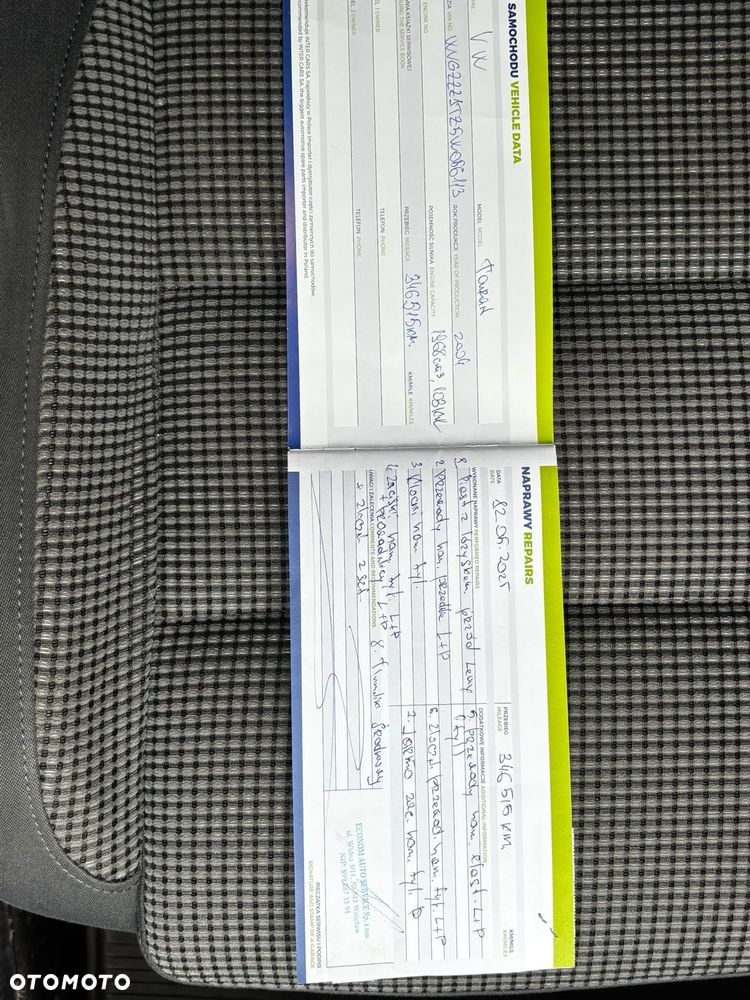 SAMOCHODU VEHICLE DATA
VW
MODEL MODEL Touran
VIN NO
ROK PRODUKCJI YEAR OF PRODUCTION 2004
ENGINE NO
POJEMNOŚĆ SILNIKA ENGINE CAPACITY 1968cm3,
KSIĄŻKI SERWISOWEJ
THE SERVICE BOOK
PRZEBIEG MILEAGE 346 515 km.
KM/MILE KM/MILES
1 OWNER
TELEFON PHONE
2 OWNER
TELEFON PHONE
rekomenduje INTER CARS SA, największy w Polsce importer i dystrybutor części zamiennych do samochodów.
recommended by INTER CARS SA, the biggest automotive spare parts importer and distributor in Poland.
NAPRAWY REPAIRS
DATA
DATE
.06.2025
PRZEBIEG
MILEAGE
346 515 KM
KM/MILE
KM/MILES
WYKONANE NAPRAWY PERFORMED REPAIRS
DODATKOWE INFORMACJE ADDITIONAL INFORMATION
Piasta z łożyskem przód Lewy
2. przewody ham. przednie L+P
3. Klocki ham. tył.
4. zaciski ham. tył. L+P
+ prowadnicy L+P
5. przewody ham. elast. L+P
(tył)
6. przewod. ham. tył. L+P
7. ham. tył P
8. Tłumik środkowy
UWAGI I ZALECENIA COMMENTS AND RECOMMENDATIONS
2 szt.
ECONOM AUTO SERVICE Sp. z o.o.
Wrocław
PIECZĄTKA SERWISU I PODPIS
SIGNATURE AND STAMP OF A GARAGE
OTOMOTO